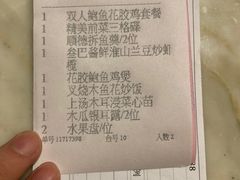 1 双人鲍鱼花胶鸡套餐
1 精美前菜三格碟
1 顺德拆鱼羹/2位
1 叁巴酱鲜淮山兰豆炒虾
榄
1 花胶鲍鱼鸡煲
1 叉烧木鱼花炒饭
1 上汤木耳浸菜心苗
1 木瓜银耳露/2位
2 水果盘/位
单号 1171739B 台号 10 人数 2